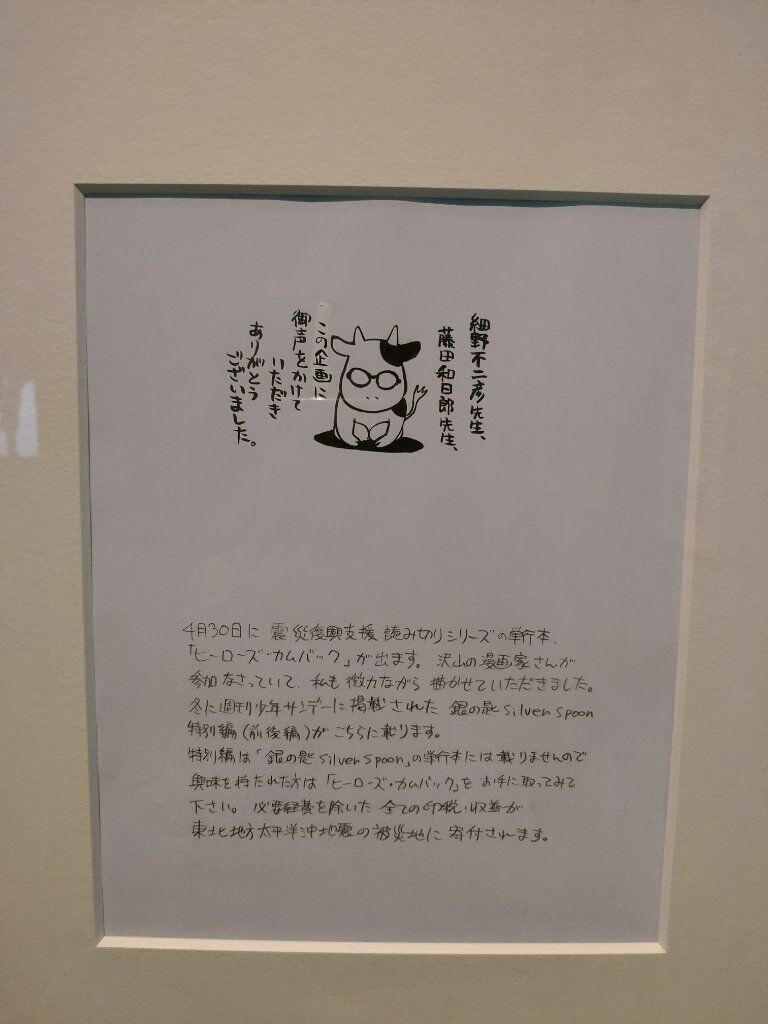 細野不二彦先生、
藤田和日郎先生、
この企画に
御声をかけて
いただき
ありがとう
ございました。
4月30日に 震災復興支援 読み切りシリーズの単行本、
「ヒーローズ・カムバック」が出ます。沢山の漫画家さんが
参加なさっていて、私も微力ながら 描かせていただきました。
冬に週刊少年サンデーに掲載された 銀の匙 Silver Spoon
特別編(前後編)がこちらに載ります。
特別編は「銀の匙 Silver Spoon」の単行本には載りませんので
興味を持たれた方は「ヒーローズ・カムバック」を お手に取ってみて
下さい。必要経費を除いた 全ての印税・収益が
東北地方太平洋沖地震の被災地に 寄付されます。